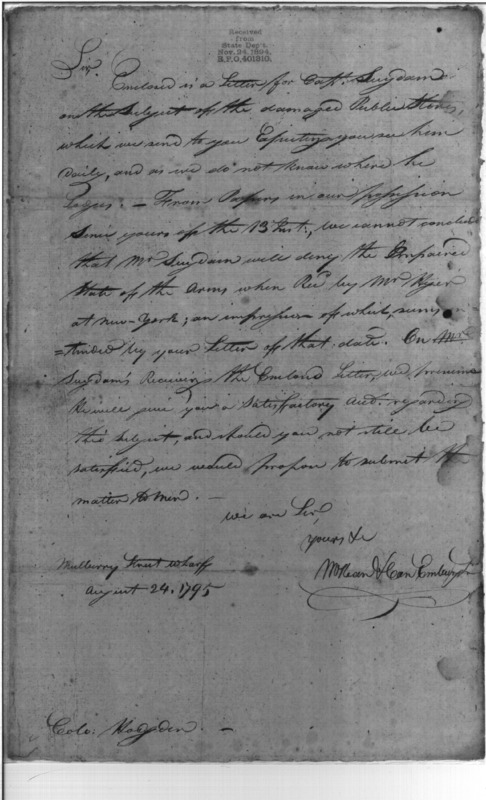 Received
from
State Dep't.
Nov. 24, 1894.
B.P.O. 401910.
Sir,
Enclosed is a Letter for Capt. Suydam
on the Subject of the damaged Public Stores,
which we send to you Expecting you see him
Daily, and as we do not know where he
Lodges. — From Papers in our possession
Since yours of the 13 Inst., we cannot conclude
that Mr Suydam will deny the Impaired
State of the Arms when Recd by Mr
at New-York; an impression of which, seems in
=tended by your Letter of that date. On Mr
Suydam's Receiving the Enclosed Letter, we presume
He will give you a Satisfactory regarding
the subject, and should you not still be
satisfied, we would propose to submit the
matter to men. —
we are Sir,
yours &c
McClean & Van Emburgh
Mulberry Street Wharf
August 24. 1795
Colo. Hodgden. —